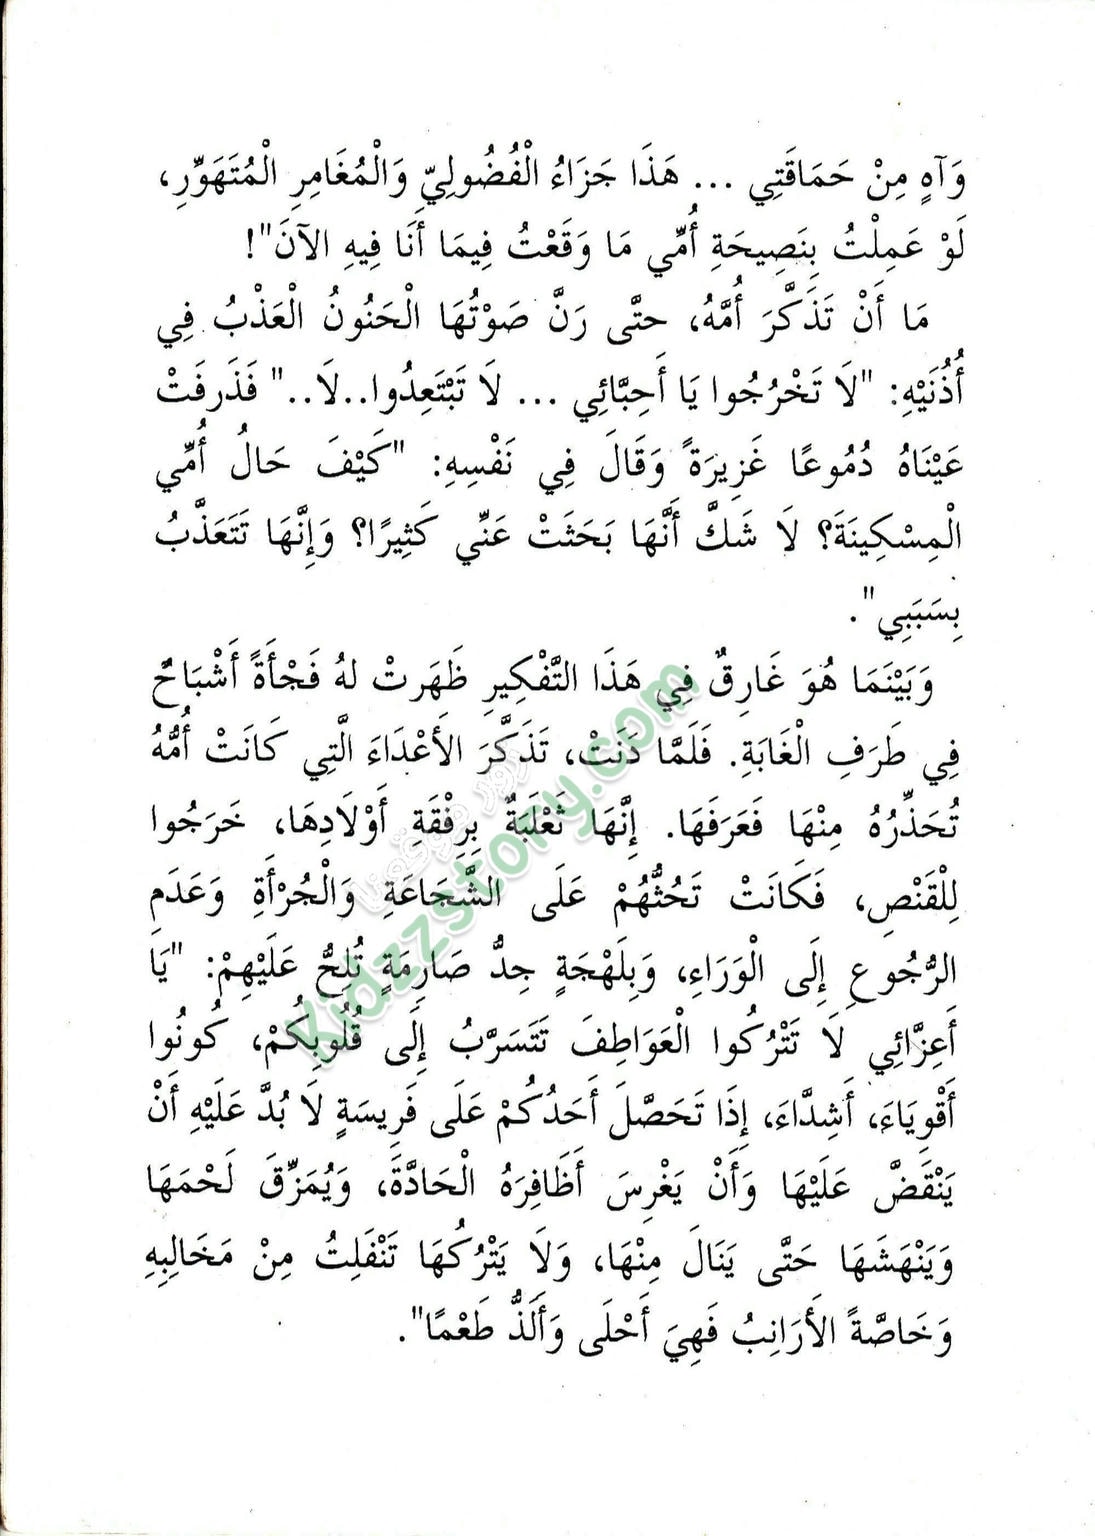 وَآهٍ مِنْ حَمَاقَتِي ... هَذَا جَزَاءُ الْفُضُولِيِّ وَالْمُغَامِرِ الْمُتَهَوِّرِ،
لَوْ عَمِلْتُ بِنَصِيحَةِ أُمِّي مَا وَقَعْتُ فِيمَا أَنَا فِيهِ الآنَ"!
مَا أَنْ تَذَكَّرَ أُمَّهُ، حتَّى رَنَّ صَوْتُهَا الْحَنُونُ الْعَذْبُ فِي
أُذُنَيْهِ: "لَا تَخْرُجُوا يَا أَحِبَّائِي ... لَا تَبْتَعِدُوا..لَا.." فَذَرفَتْ
عَيْنَاهُ دُمُوعًا غَزِيرَةً وَقَالَ فِي نَفْسِهِ: "كَيْفَ حَالُ أُمِّي
الْمِسْكِينَةَ؟ لَا شَكَّ أَنَّهَا بَحَثَتْ عَنِّي كَثِيرًا؟ وَإِنَّهَا تَتَعَذَّبُ
بِسَبَبِي".
وَبَيْنَمَا هُوَ غَارِقٌ فِي هَذَا التَّفْكِيرِ ظَهَرتْ لهُ فَجْأَةً أَشْبَاحٌ
فِي طَرَفِ الْغَابَةِ. فَلَمَّا دَنَتْ، تَذَكَّرَ الأَعْدَاءَ الَّتِي كَانَتْ أُمُّهُ
تُحَذِّرُهُ مِنْهَا فَعَرَفَهَا. إِنَّهَا ثَعْلَبَةٌ بِرِفْقَةِ أَوْلَادِهَا، خَرَجُوا
لِلْقَنْصِ، فَكَانَتْ تَحُثُّهُمْ عَلَى الشَّجَاعَةِ وَالْجُرْأَةِ وَعَدَمِ
الرُّجُوعِ إِلَى الْوَرَاءِ، وَبِلَهْجَةٍ جِدُّ صَارِمَةٍ تُلِحُّ عَلَيْهِمْ: "يَا
أَعِزَّائِي لَا تَتْرُكُوا الْعَوَاطِفَ تَتَسَرَّبُ إِلَى قُلُوبِكُمْ، كُونُوا
أَقْوِيَاءَ، أَشِدَّاءَ، إِذَا تَحَصَّلَ أَحَدُكُمْ عَلَى فَرِيسَةٍ لَا بُدَّ عَلَيْهِ أَنْ
يَنْقَضَّ عَلَيْهَا وَأَنْ يَغْرِسَ أَظَافِرَهُ الْحَادَّةَ، وَيُمَزِّقَ لَحْمَهَا
وَيَنْهَشَهَا حَتَّى يَنَالَ مِنْهَا، وَلَا يَتْرُكهَا تَنْفَلِتُ مِنْ مَخَالِبِهِ
وَخَاصَّةً الأَرَانِبُ فَهِيَ أَحْلَى وَأَلَذُّ طَعْمًا".
Kidzzstory.com